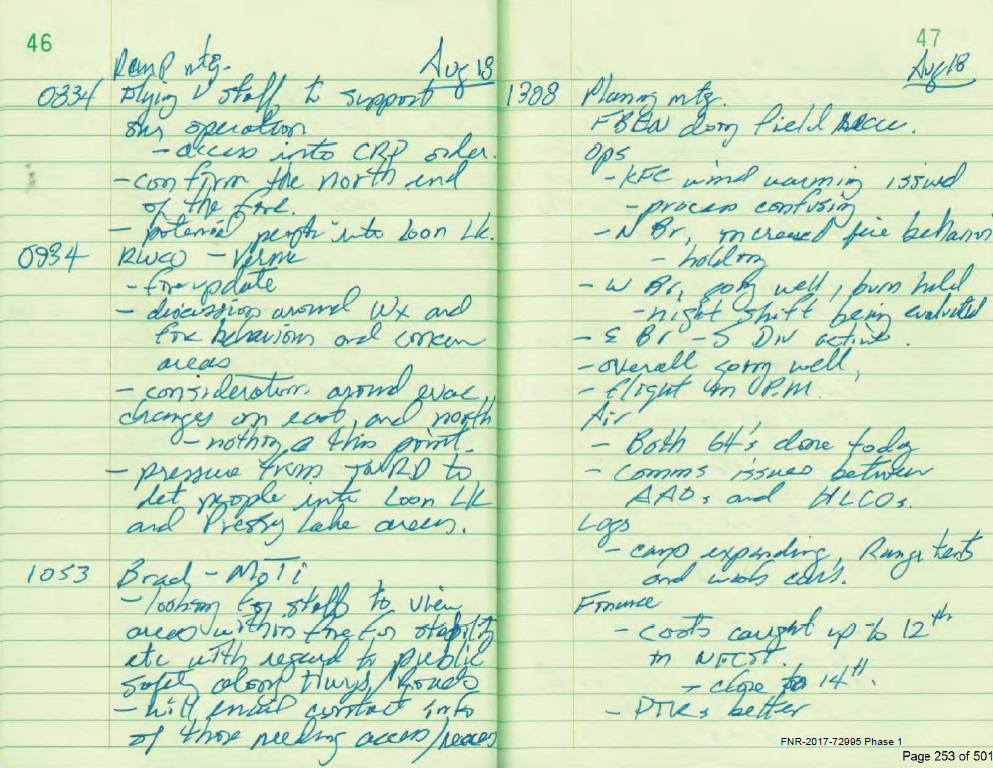 46
Ramp mtg. Aug 18
0834 Flying staff to support
our operation
- access into CRP order.
- confirm the north end
of the fire.
- potential people into Loon Lk.
0934 RWCO - Verne
- fire update
- discussion around Wx and
fire behaviour and concern
areas
- consideration around evac
changes on east, and north
- nothing @ this point.
- pressure from to
let people into Loon Lk
and Pressy Lake areas.
1053 Brad - MoTi
- looking for staff to view
areas within fire for stability
etc with regard to public
safety along Hwys/Roads
- will email contact info
of those needing access/recces
47
Aug 18
1308 Planning mtg.
FBEN doing field recce.
Ops
- KFC wind warning issued
- process confusing
- N Br, increased fire behavior
- holding
- W Br, going well, burn held
- night shift being evaluated
- E Br - S Div active.
- overall going well,
- flight in P.M.
Air
- Both 64's done today
- comms issues between
AAOs and HLCOs.
Logs
- camp expanding, Range tents
and wash cars.
Finance
- costs caught up to 12th
in NFCST.
- close to 14th.
- PTRs better
FNR-2017-72995 Phase 1
Page 253 of 501